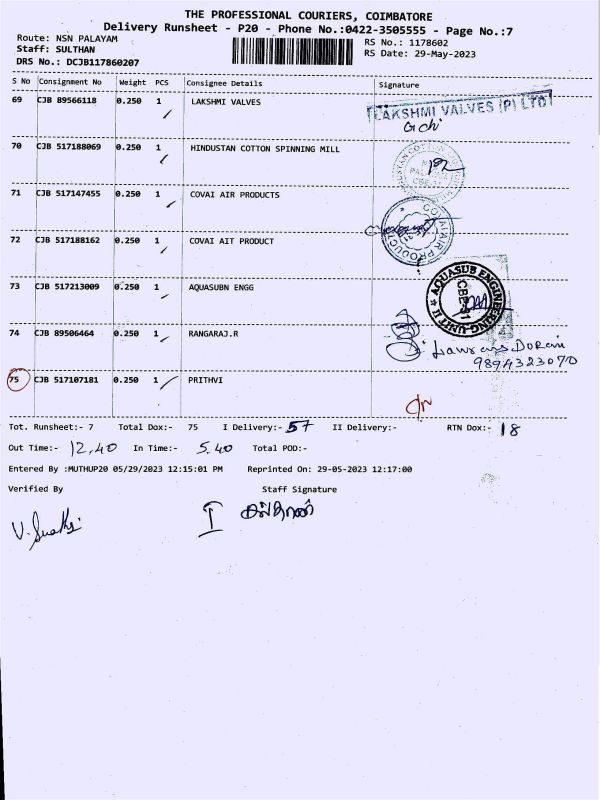 THE PROFESSIONAL COURIERS, COIMBATORE
Delivery Runsheet - P20 - Phone No.:0422-3505555 - Page No.:7
Route: NSN PALAYAM
RS No.: 1178602
Staff: SULTHAN
RS Date: 29-May-2023
DRS No.: DCJB117860207
S No Consignment No Weight PCS Consignee Details Signature
69 CJB 89566118 0.250 1 LAKSHMI VALVES
LAKSHMI VALVES (P) LTD
70 CJB 517188069 0.250 1 HINDUSTAN COTTON SPINNING MILL
71 CJB 517147455 0.250 1 COVAI AIR PRODUCTS
COVAI AIR PRODUCTS
72 CJB 517188162 0.250 1 COVAI AIT PRODUCT
73 CJB 517213009 0.250 1 AQUASUBN ENGG
AQUASUB ENGINEERING-UNIT II
74 CJB 89506464 0.250 1 RANGARAJ.R
9894323070
75 CJB 517107181 0.250 1 PRITHVI
Tot. Runsheet:- 7 Total Dox:- 75 I Delivery:- 57 II Delivery:- RTN Dox:- 18
Out Time:- 12.40 In Time:- 5.40 Total POD:-
Entered By :MUTHUP20 05/29/2023 12:15:01 PM Reprinted On: 29-05-2023 12:17:00
Verified By Staff Signature